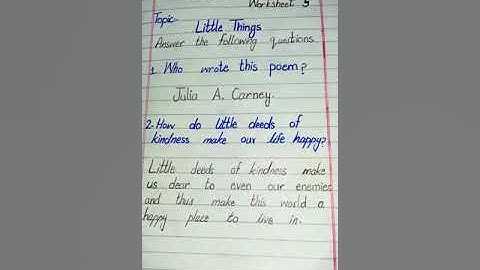 Worksheet 5
Topic-
Little Things
Answer the following questions
1. Who wrote this poem?
Julia A. Carney.
2- How do little deeds of
kindness make our life happy?
Little deeds of kindness make
us dear to even our enemies
and thus make this world a
happy place to live in.